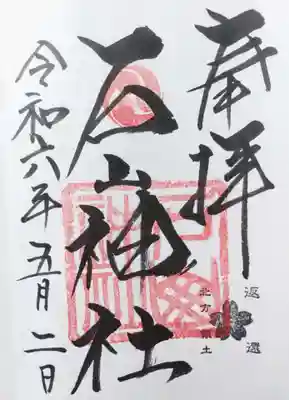 奉拝
石山神社
令和六年五月二日
北方領土
返還